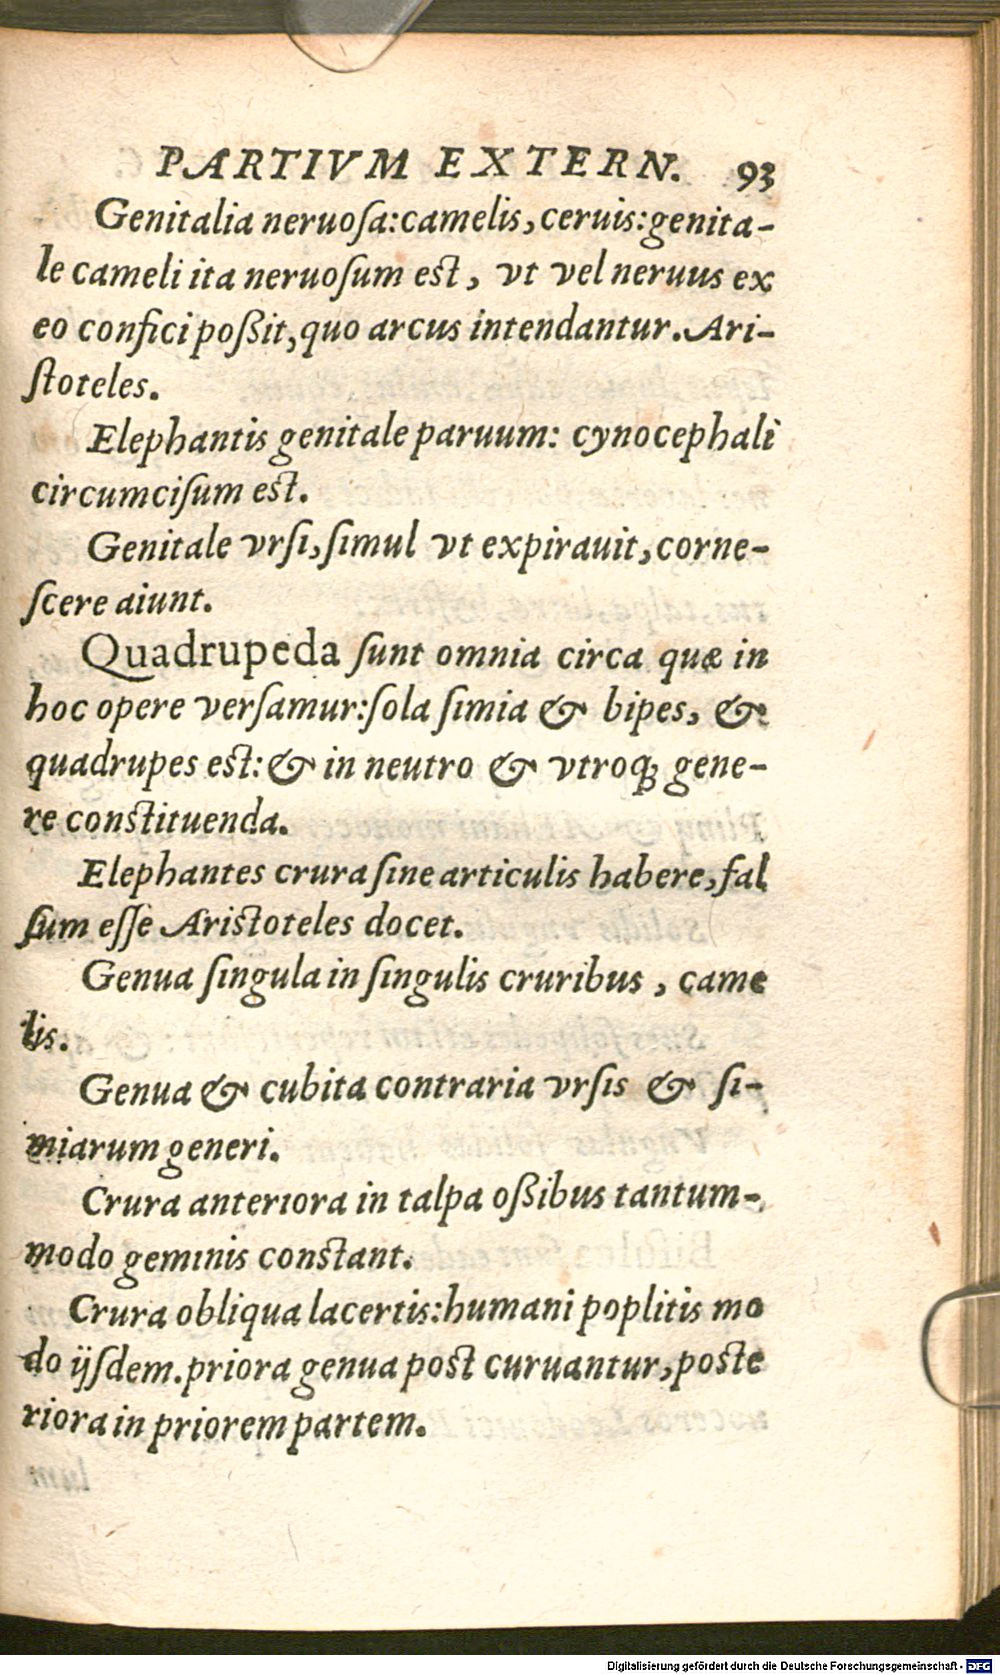 PARTIVM EXTERN. 93
Genitalia neruoſa:camelis, ceruis:genita-
le cameli ita neruoſum est, vt vel neruus ex
eo confici poßit, quo arcus intendantur. Ari-
ſtoteles.
Elephantis genitale paruum: cynocephali
circumciſum est.
Genitale vrſi, ſimul vt expirauit, corne-
ſcere aiunt.
Quadrupeda ſunt omnia circa quæ in
hoc opere verſamur:ſola ſimia & bipes, &
quadrupes est:& in neutro & vtroq; gene-
re constituenda.
Elephantes crura ſine articulis habere, fal
ſum eſſe Aristoteles docet.
Genua ſingula in ſingulis cruribus, came
lis.
Genua & cubita contraria vrſis & ſi-
miarum generi.
Crura anteriora in talpa oßibus tantum-
modo geminis constant.
Crura obliqua lacertis:humani poplitis mo
do ijſdem.priora genua post curuantur, poste
riora in priorem partem.
Digitalisierung gefördert durch die Deutsche Forschungsgemeinschaft - DFG